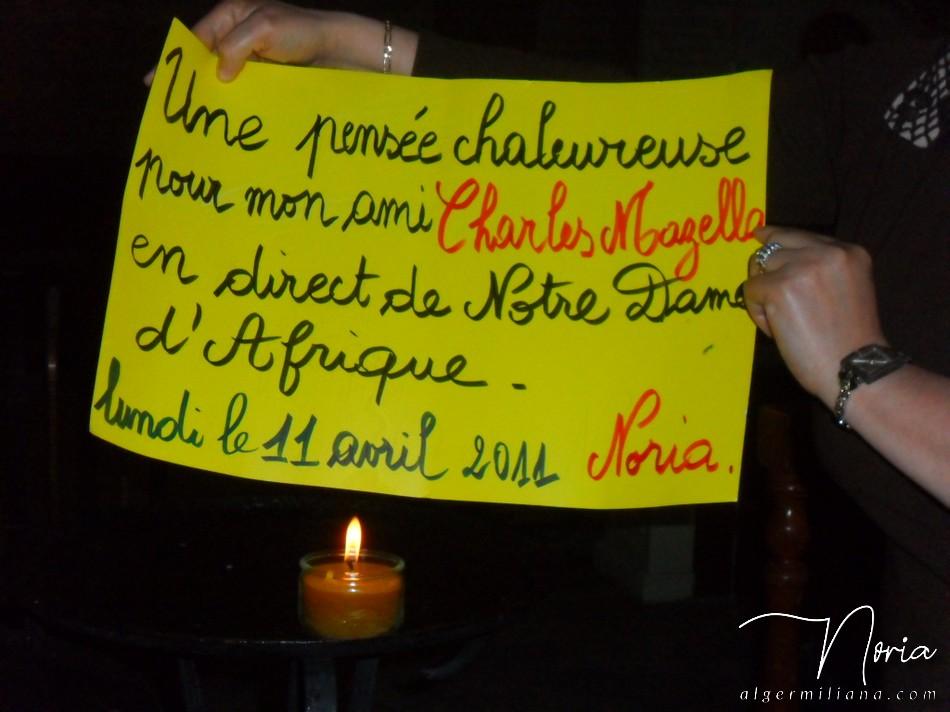 Une pensée chaleureuse
pour mon ami Charles Mazella
en direct de Notre Dame
d'Afrique.
lundi le 11 avril 2011 Noria.
Noria
algermiliana.com